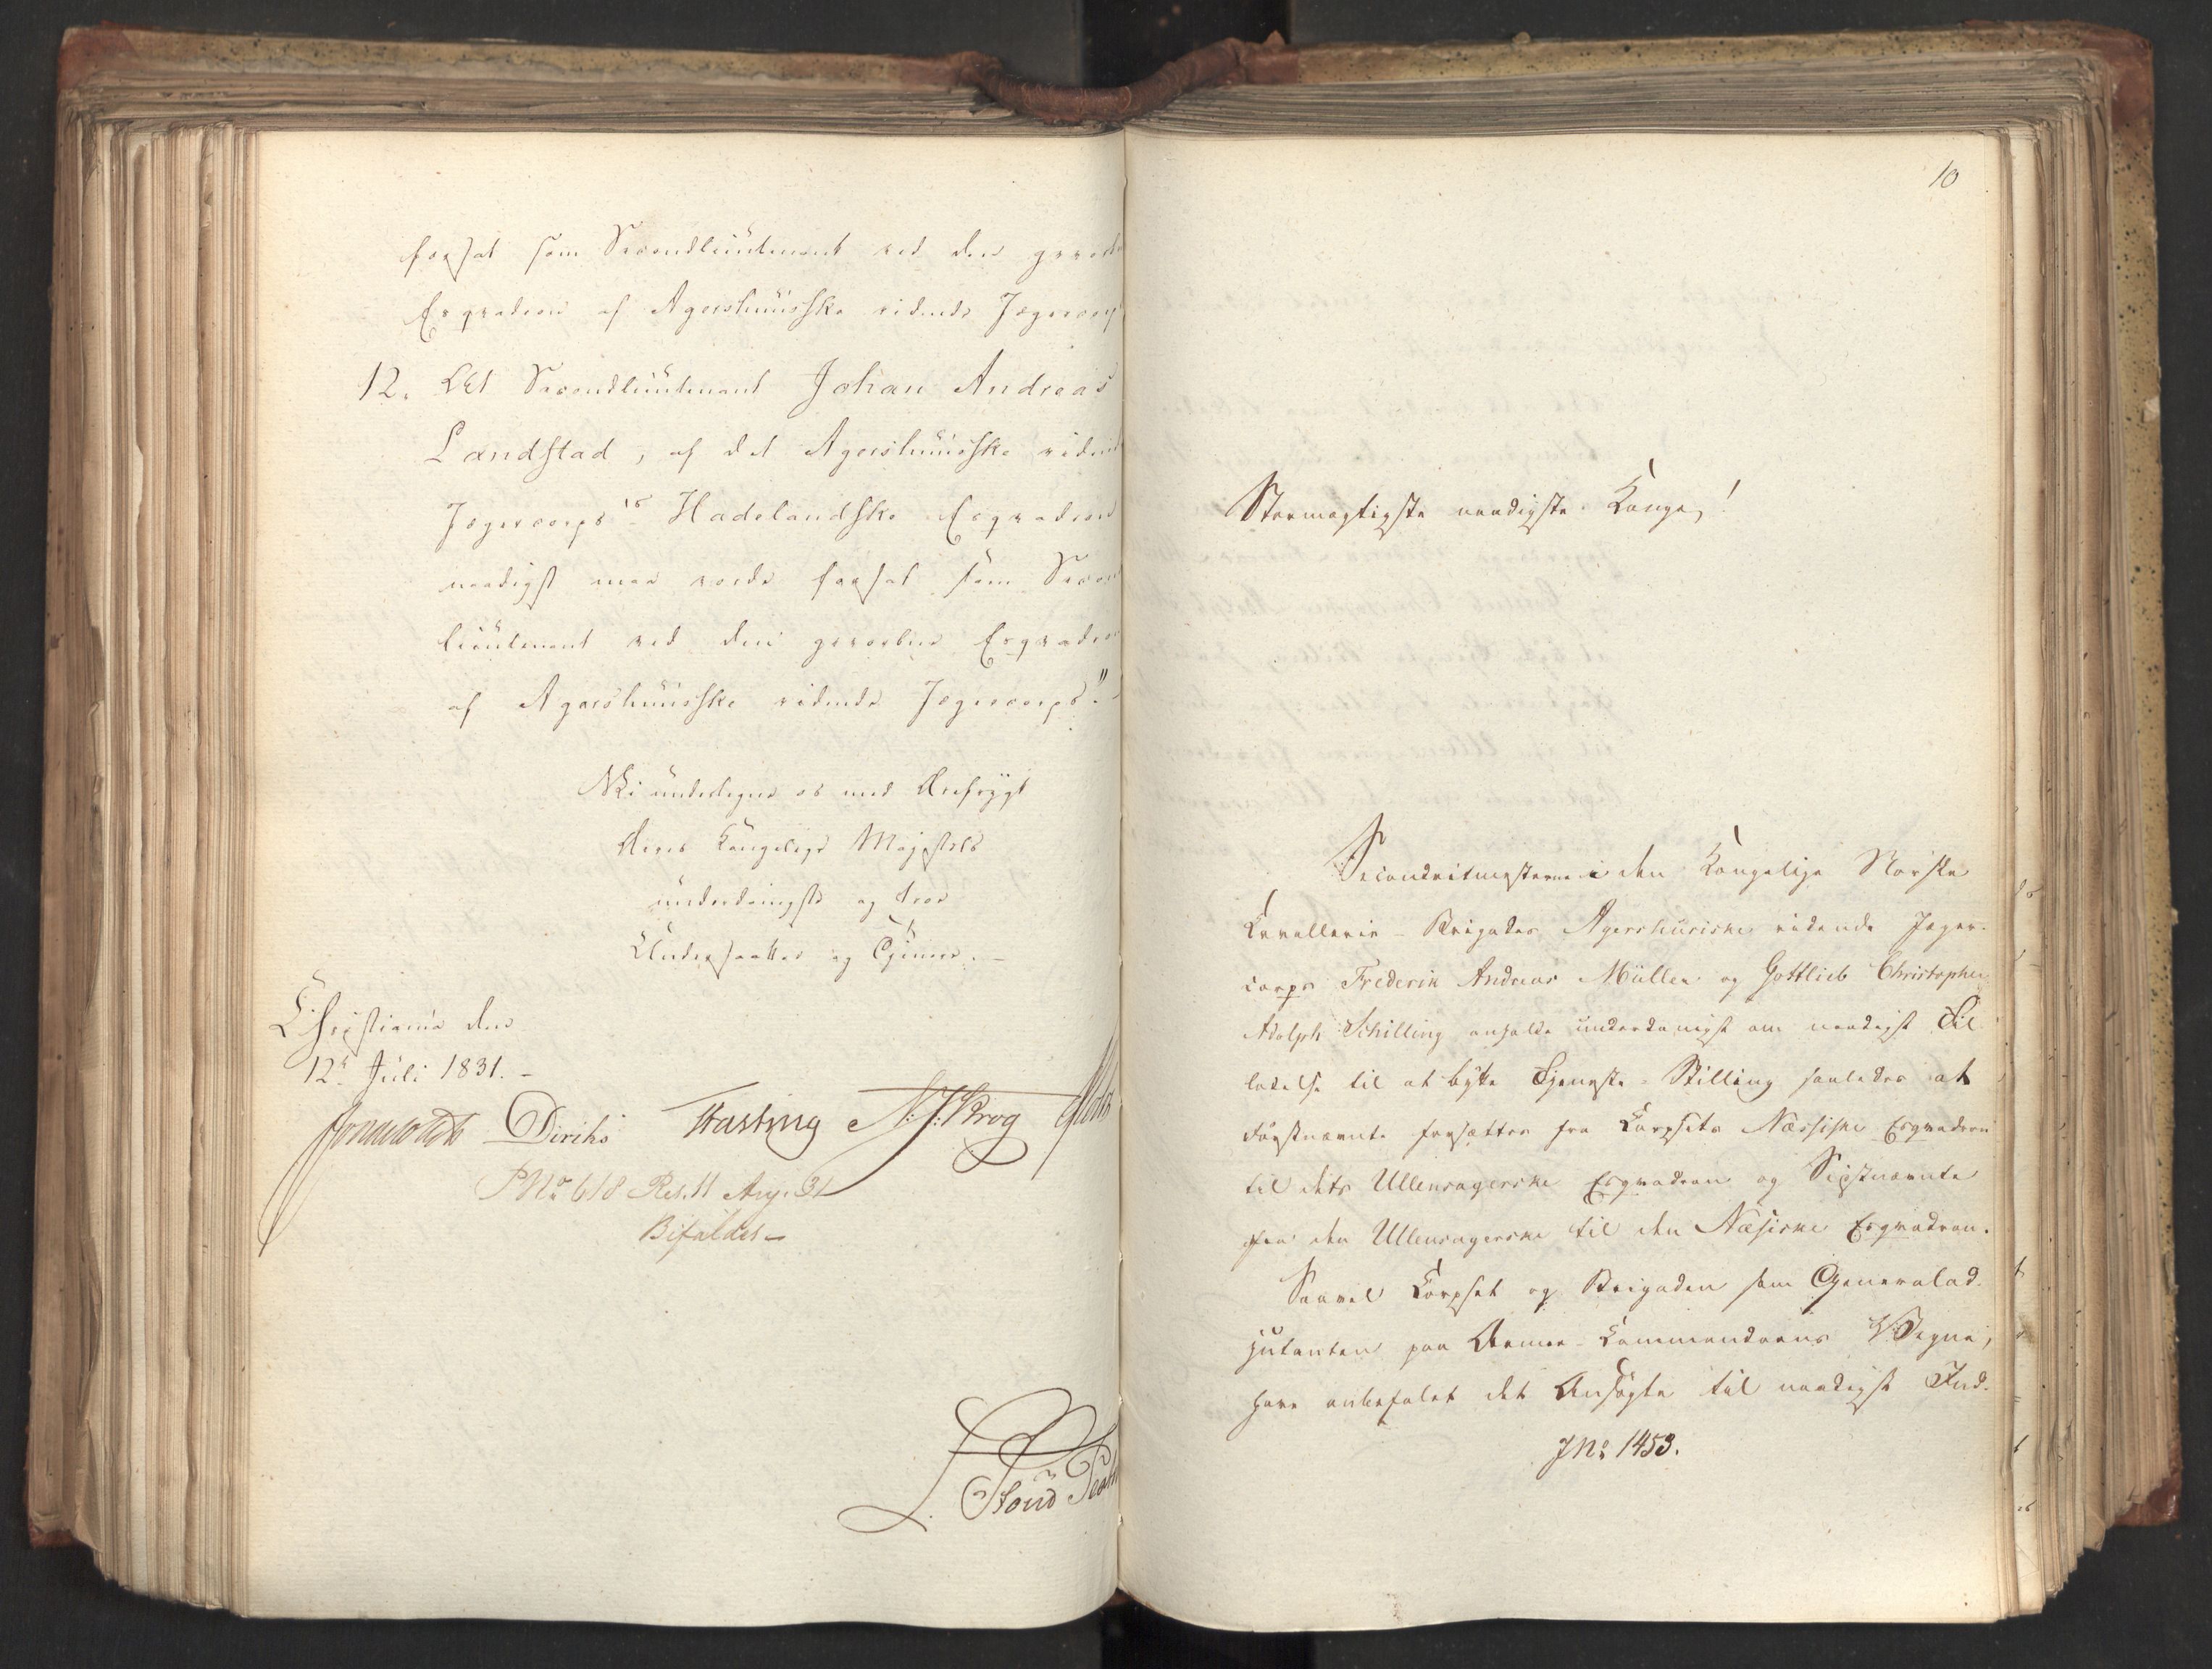 forsat som Secondlieutenant ved den
Esqvadron af Agershuusske ridende Jægercorps
12. At Secondlieutenant Johan Andreas
Landstad, af det Agershuusske ridende
Jægercorps's Hadelandske Esqvadron
naadigst maa vorde forsat som Second
lieutenant ved den gevorbne Esqvadron
af Agershuusske ridende Jægercorps."-
Vi undertegne os med Ærefrygt
Deres Kongelige Majestæts
underdanigste og troe
Undersaatter og Tjenere.-
Christiania den
12te Juli 1831.-
Diriks Fasting N. J. Krog
PNo 618 Res. 11 Aug. 31
Bifaldes-
10
Stormægtigste naadigste Konge!
Secondritmesterne i den Kongelige Norske
Cavallerie-Brigades Agershusiske ridende Jæger-
corps Frederik Andreas Müller og Gottlieb Christopher
Adolph Schilling anholde underdanigst om naadigst Til-
ladelse til at bytte Tjeneste-Stilling saaledes at
Førstnævnte forsættes fra Corpsets Næssiske Esqvadron
til dets Ullensagerske Esqvadron og Sidstnævnte
fra den Ullensagerske til den Næsiske Esqvadron.
Saavel Corpset og Brigaden som Generalad-
jutanten paa Armee-Commandoens Vegne,
have anbefalet det Ansøgte til naadigst Ind-
JNo 1453.